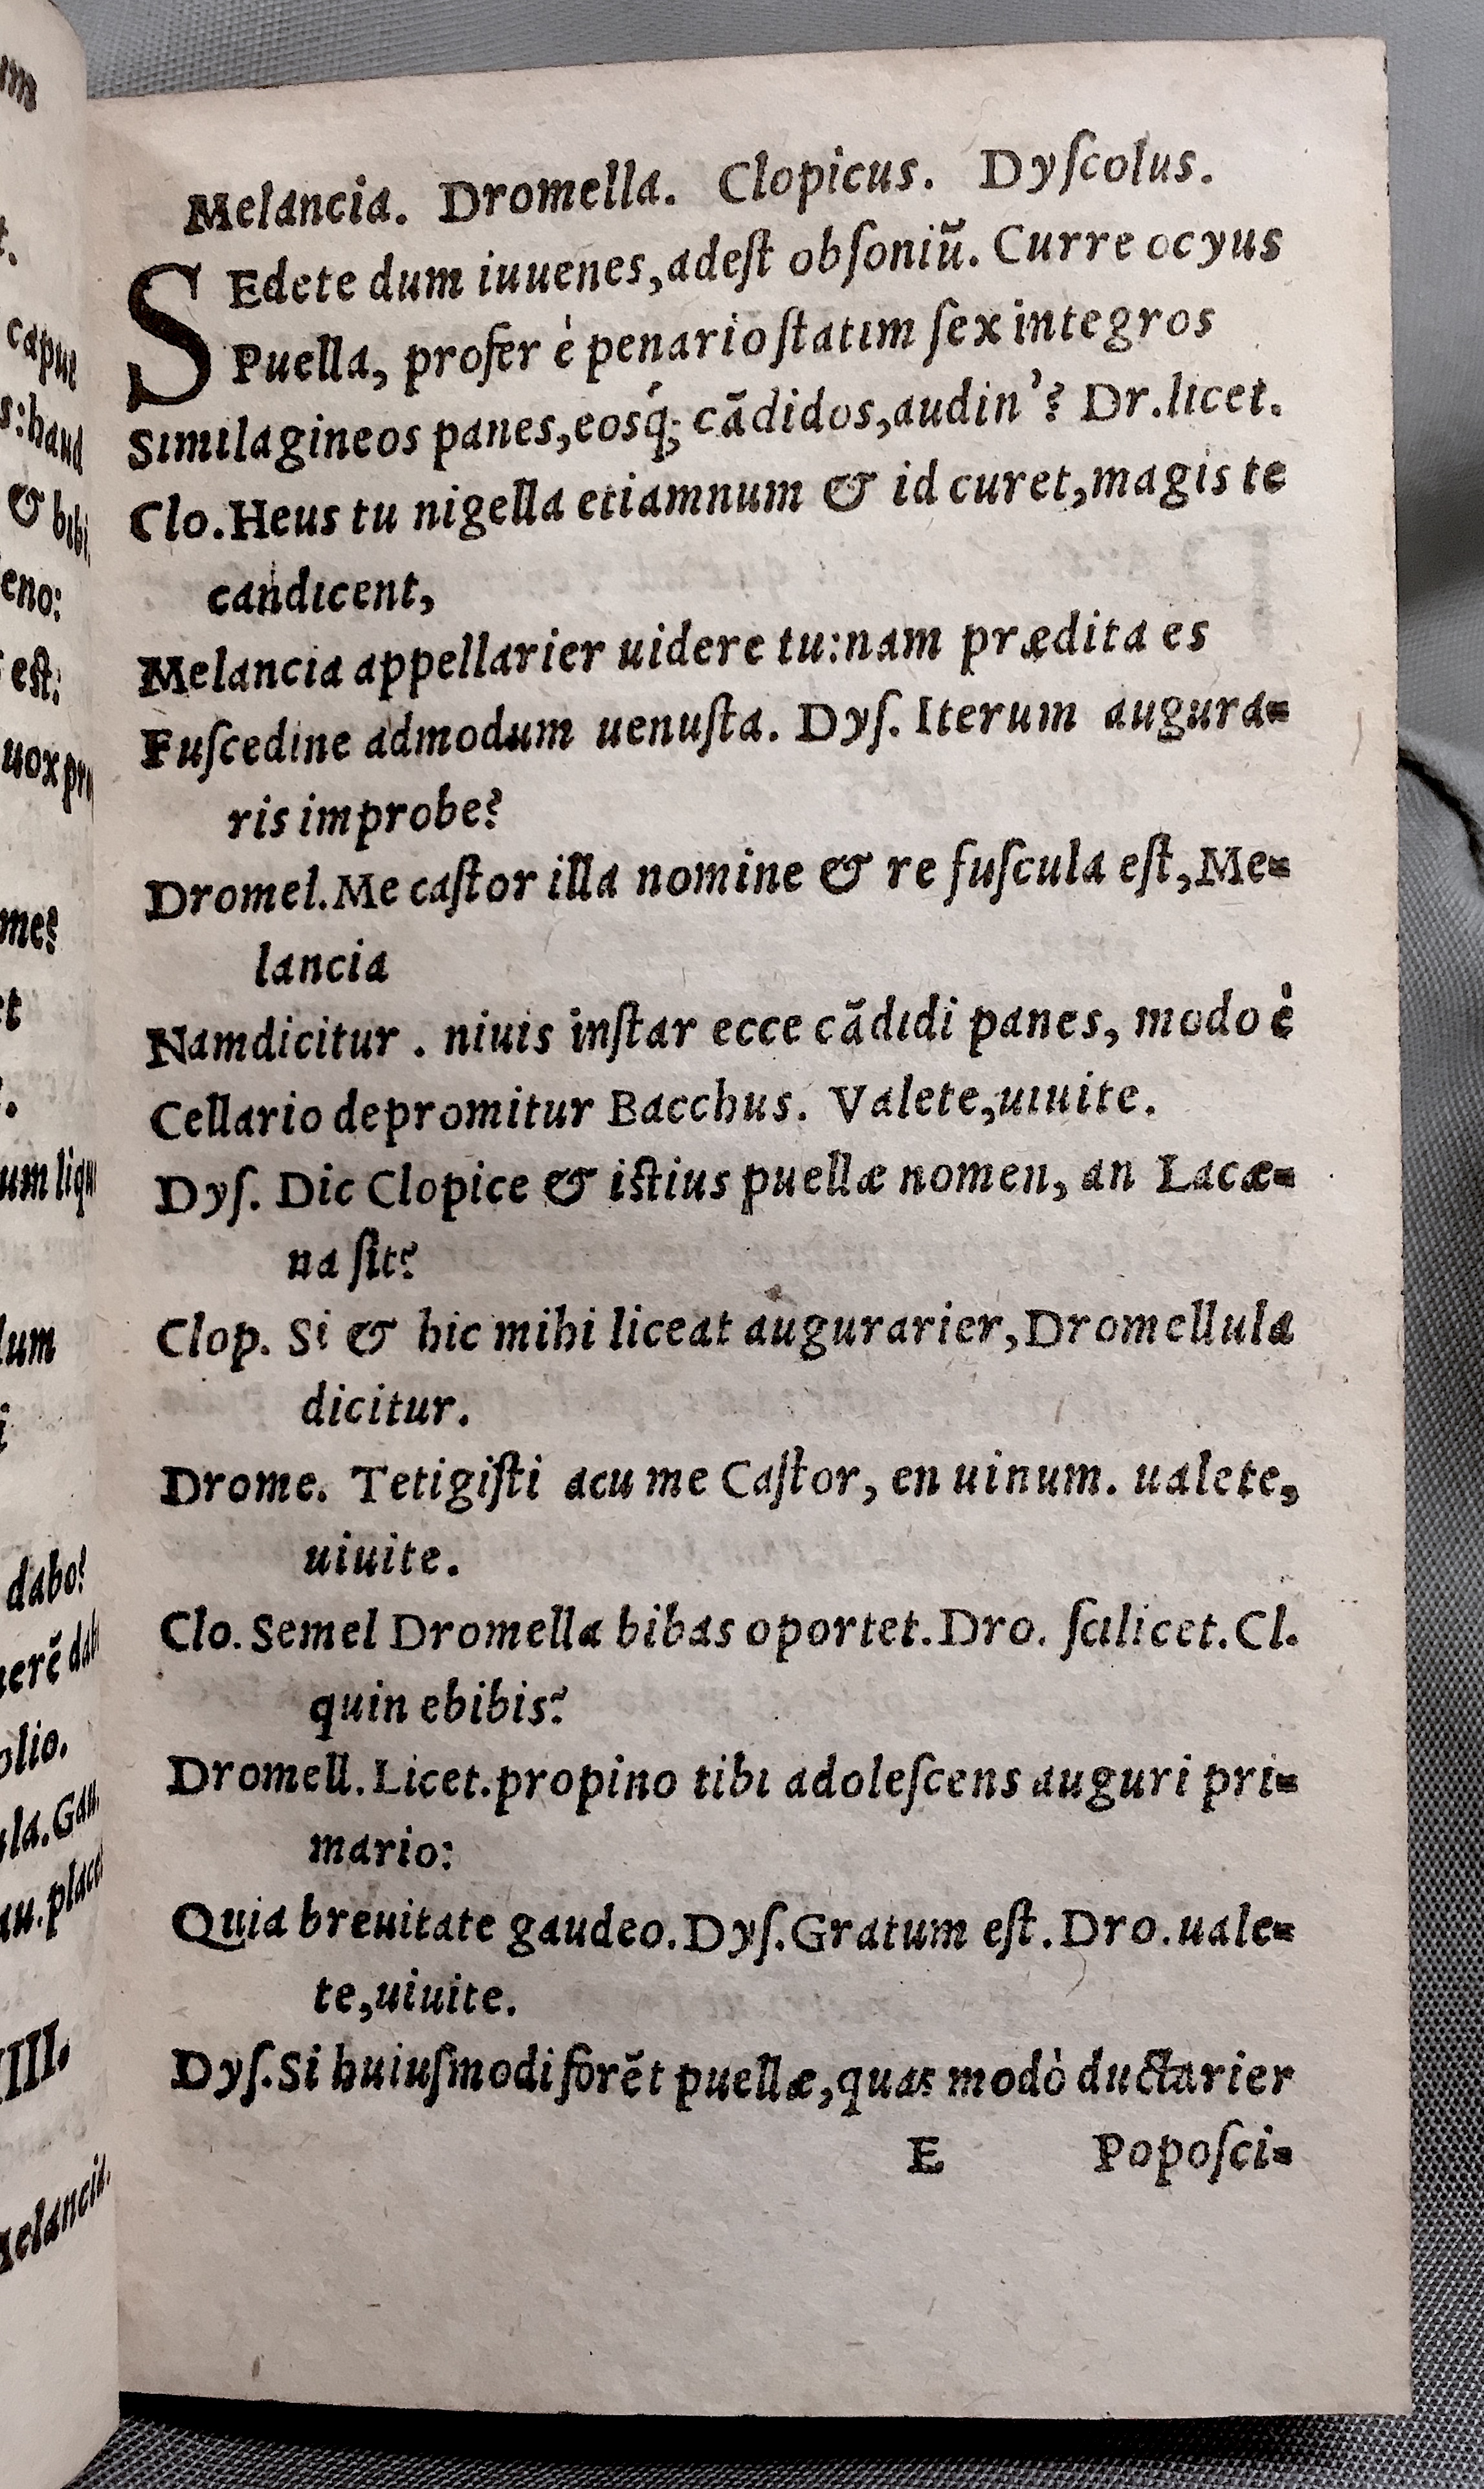 Melancia. Dromella. Clopicus. Dyſcolus.
SEdete dum iuuenes,adeſt obſoniū. Curre ocyus
Puella, profer è penario ſtatim ſex integros
Similagineos panes,eosq́; cādidos,audin'? Dr.licet.
Clo.Heus tu nigella etiamnum & id curet,magis te
candicent,
Melancia appellarier uidere tu:nam prædita es
Fuſcedine admodum uenuſta. Dyſ. Iterum augura-
ris improbe?
Dromel.Me caſtor illa nomine & re fuſcula eſt,Me-
lancia
Namdicitur . niuis inſtar ecce cādidi panes, modo è
Cellario depromitur Bacchus. Valete,uiuite.
Dyſ. Dic Clopice & iſtius puellæ nomen, an Lacæ-
na ſit?
Clop. Si & hic mihi liceat augurarier,Dromellula
dicitur.
Drome. Tetigiſti acu me Caſtor, en uinum. ualete,
uiuite.
Clo. Semel Dromella bibas oportet.Dro. ſcilicet.Cl.
quin ebibis?
Dromell.Licet.propino tibi adoleſcens auguri pri-
mario:
Quia breuitate gaudeo.Dyſ.Gratum eſt.Dro.uale-
te,uiuite.
Dyſ.Si huiuſmodi forēt puellæ,quas modò ductarier
E Popoſci-
capue
s:haud
& bibi
eno:
eſt:
uox
me?
um
dabo?
olio.
la.Gau.
au.
VIII.
Melancia.